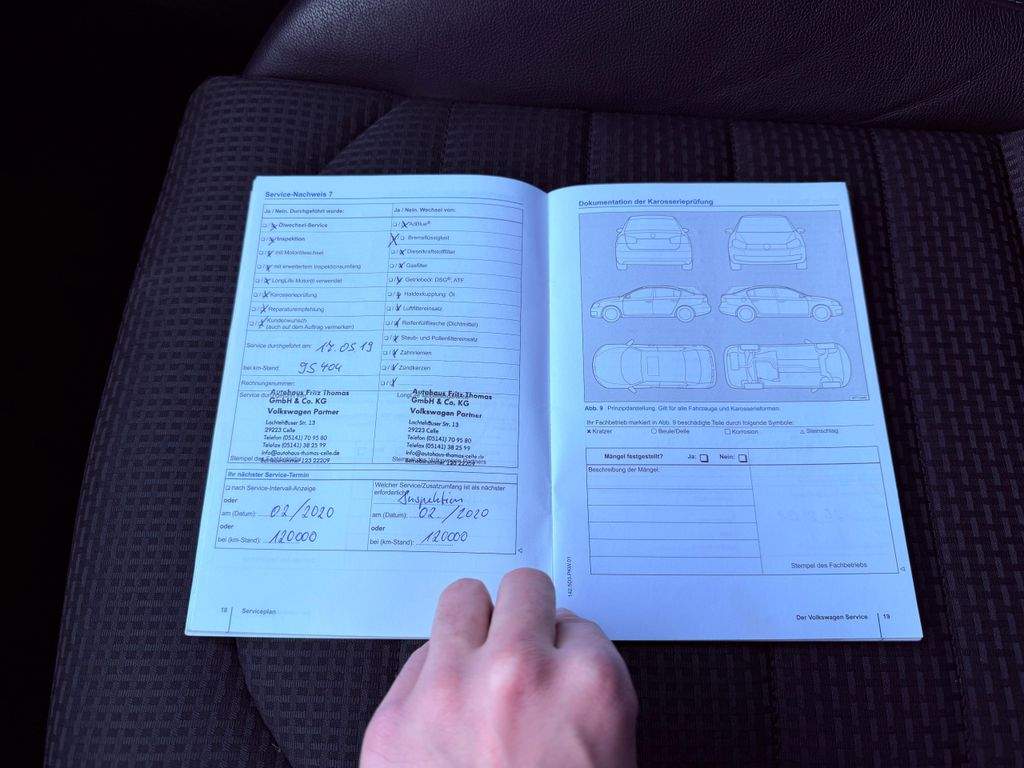 Service-Nachweis 7
Ja / Nein. Durchgeführt wurde:
Ölwechsel-Service
Inspektion
mit Motorölwechsel
mit erweitertem Inspektionsumfang
LongLife Motoröl verwendet
Karosserieprüfung
Reparaturempfehlung
Kundenwunsch
(auch auf dem Auftrag vermerken)
Service durchgeführt am: 17.05 19
bei km-Stand: 95 404
Rechnungsnummer:
Ja / Nein. Wechsel von:
AdBlue®
Bremsflüssigkeit
Dieselkraftstofffilter
Gasfilter
Getriebeöl: DSG®, ATF
Haldexkupplung: Öl
Luftfiltereinsatz
Reifenfüllflasche (Dichtmittel)
Staub- und Pollenfiltereinsatz
Zahnriemen
Zündkerzen
Autohaus Fritz Thomas
GmbH & Co. KG
Volkswagen Partner
Lachtehäuser Str. 13
29223 Celle
Telefon (05141) 70 95 80
Telefax (05141) 38 25 99
info@autohaus-thomas-celle.de
Autohaus Fritz Thomas
GmbH & Co. KG
Volkswagen Partner
Lachtehäuser Str. 13
29223 Celle
Telefon (05141) 70 95 80
Telefax (05141) 38 25 99
info@autohaus-thomas-celle.de
Ihr nächster Service-Termin
nach Service-Intervall-Anzeige
oder
am (Datum): 02/2020
oder
bei (km-Stand): 120000
Welcher Service/Zusatzumfang ist als nächster
erforderlich: Inspektion
am (Datum): 02./2020
oder
bei (km-Stand): 120000
18 Serviceplan
Dokumentation der Karosserieprüfung
Abb. 9 Prinzipdarstellung. Gilt für alle Fahrzeuge und Karosserieformen.
Ihr Fachbetrieb markiert in Abb. 9 beschädigte Teile durch folgende Symbole:
× Kratzer ○ Beule/Delle □ Korrosion △ Steinschlag
Mängel festgestellt? Ja: Nein:
Beschreibung der Mängel:
Stempel des Fachbetriebs
Der Volkswagen Service 19